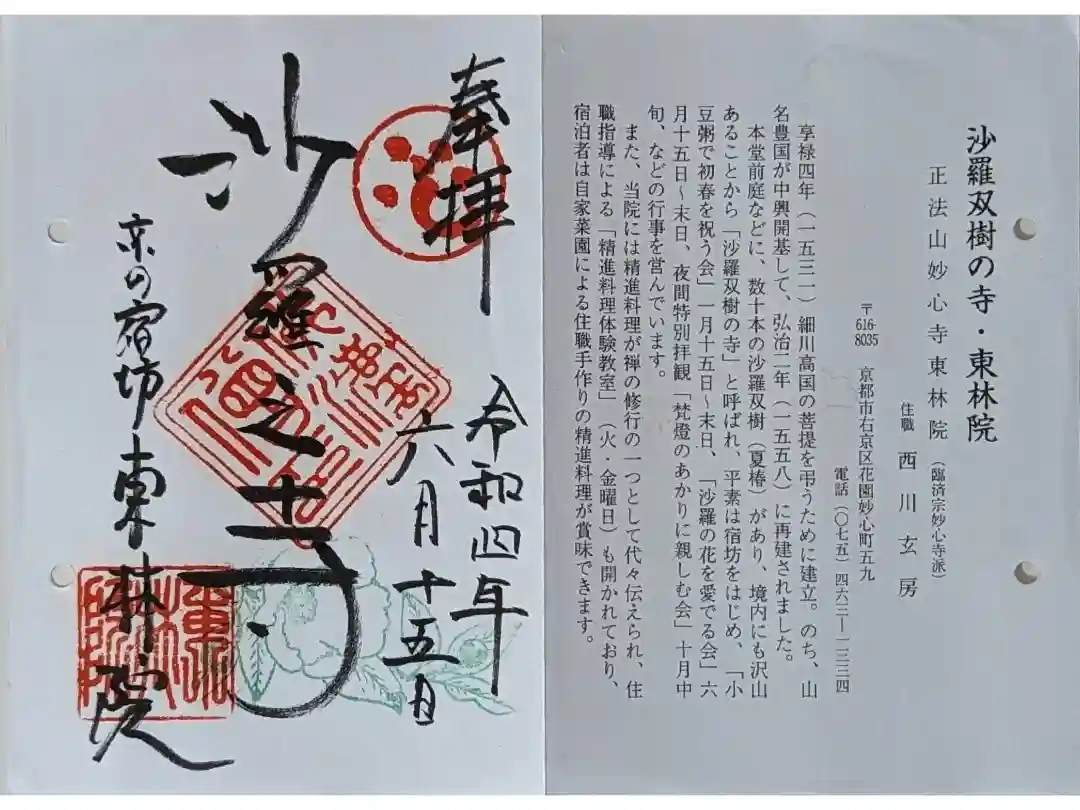 奉拝
令和四年
六月十五日
沙羅之寺
京の宿坊 東林院
沙羅双樹の寺・東林院
正法山妙心寺東林院（臨済宗妙心寺派）
住職 西川玄房
〒616-8035 京都市右京区花園妙心寺町五九
電話（〇七五）四六三―一三三四
享禄四年（一五三一）細川高国の菩提を弔うために建立。のち、山
名豊国が中興開基して、弘治二年（一五五八）に再建されました。
本堂前庭などに、数十本の沙羅双樹（夏椿）があり、境内にも沢山
あることから「沙羅双樹の寺」と呼ばれ、平素は宿坊をはじめ、「小
豆粥で初春を祝う会」一月十五日～末日、「沙羅の花を愛でる会」六
月十五日～末日、夜間特別拝観「梵燈のあかりに親しむ会」十月中
旬、などの行事を営んでいます。
また、当院には精進料理が禅の修行の一つとして代々伝えられ、住
職指導による「精進料理体験教室」（火・金曜日）も開かれており、
宿泊者は自家菜園による住職手作りの精進料理が賞味できます。